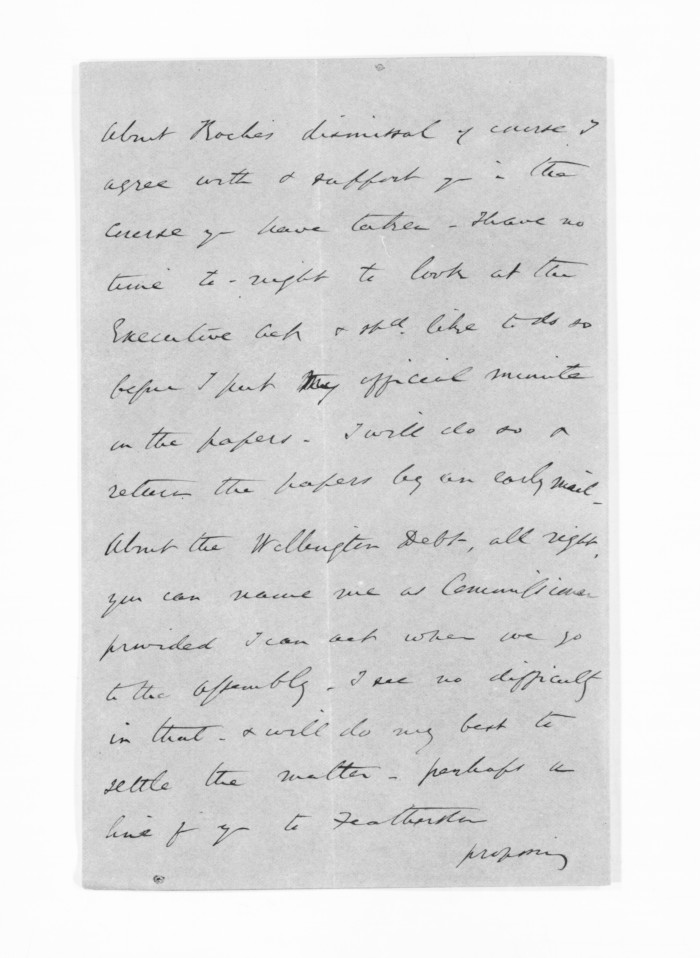 About Roche's dismissal of course I
agree with & support yr in the
course yr have taken - I have no
time to-night to look at the
Executive Act & shd. like to do so
before I put my official minute
in the papers - I will do so &
return the papers by an early mail -
About the Wellington Debt, all right,
you can name me as Commissioner
provided I can act when we go
to the Assembly - I see no difficulty
in that - & will do my best to
settle the matter - perhaps a
line f yr to Featherston
proposing